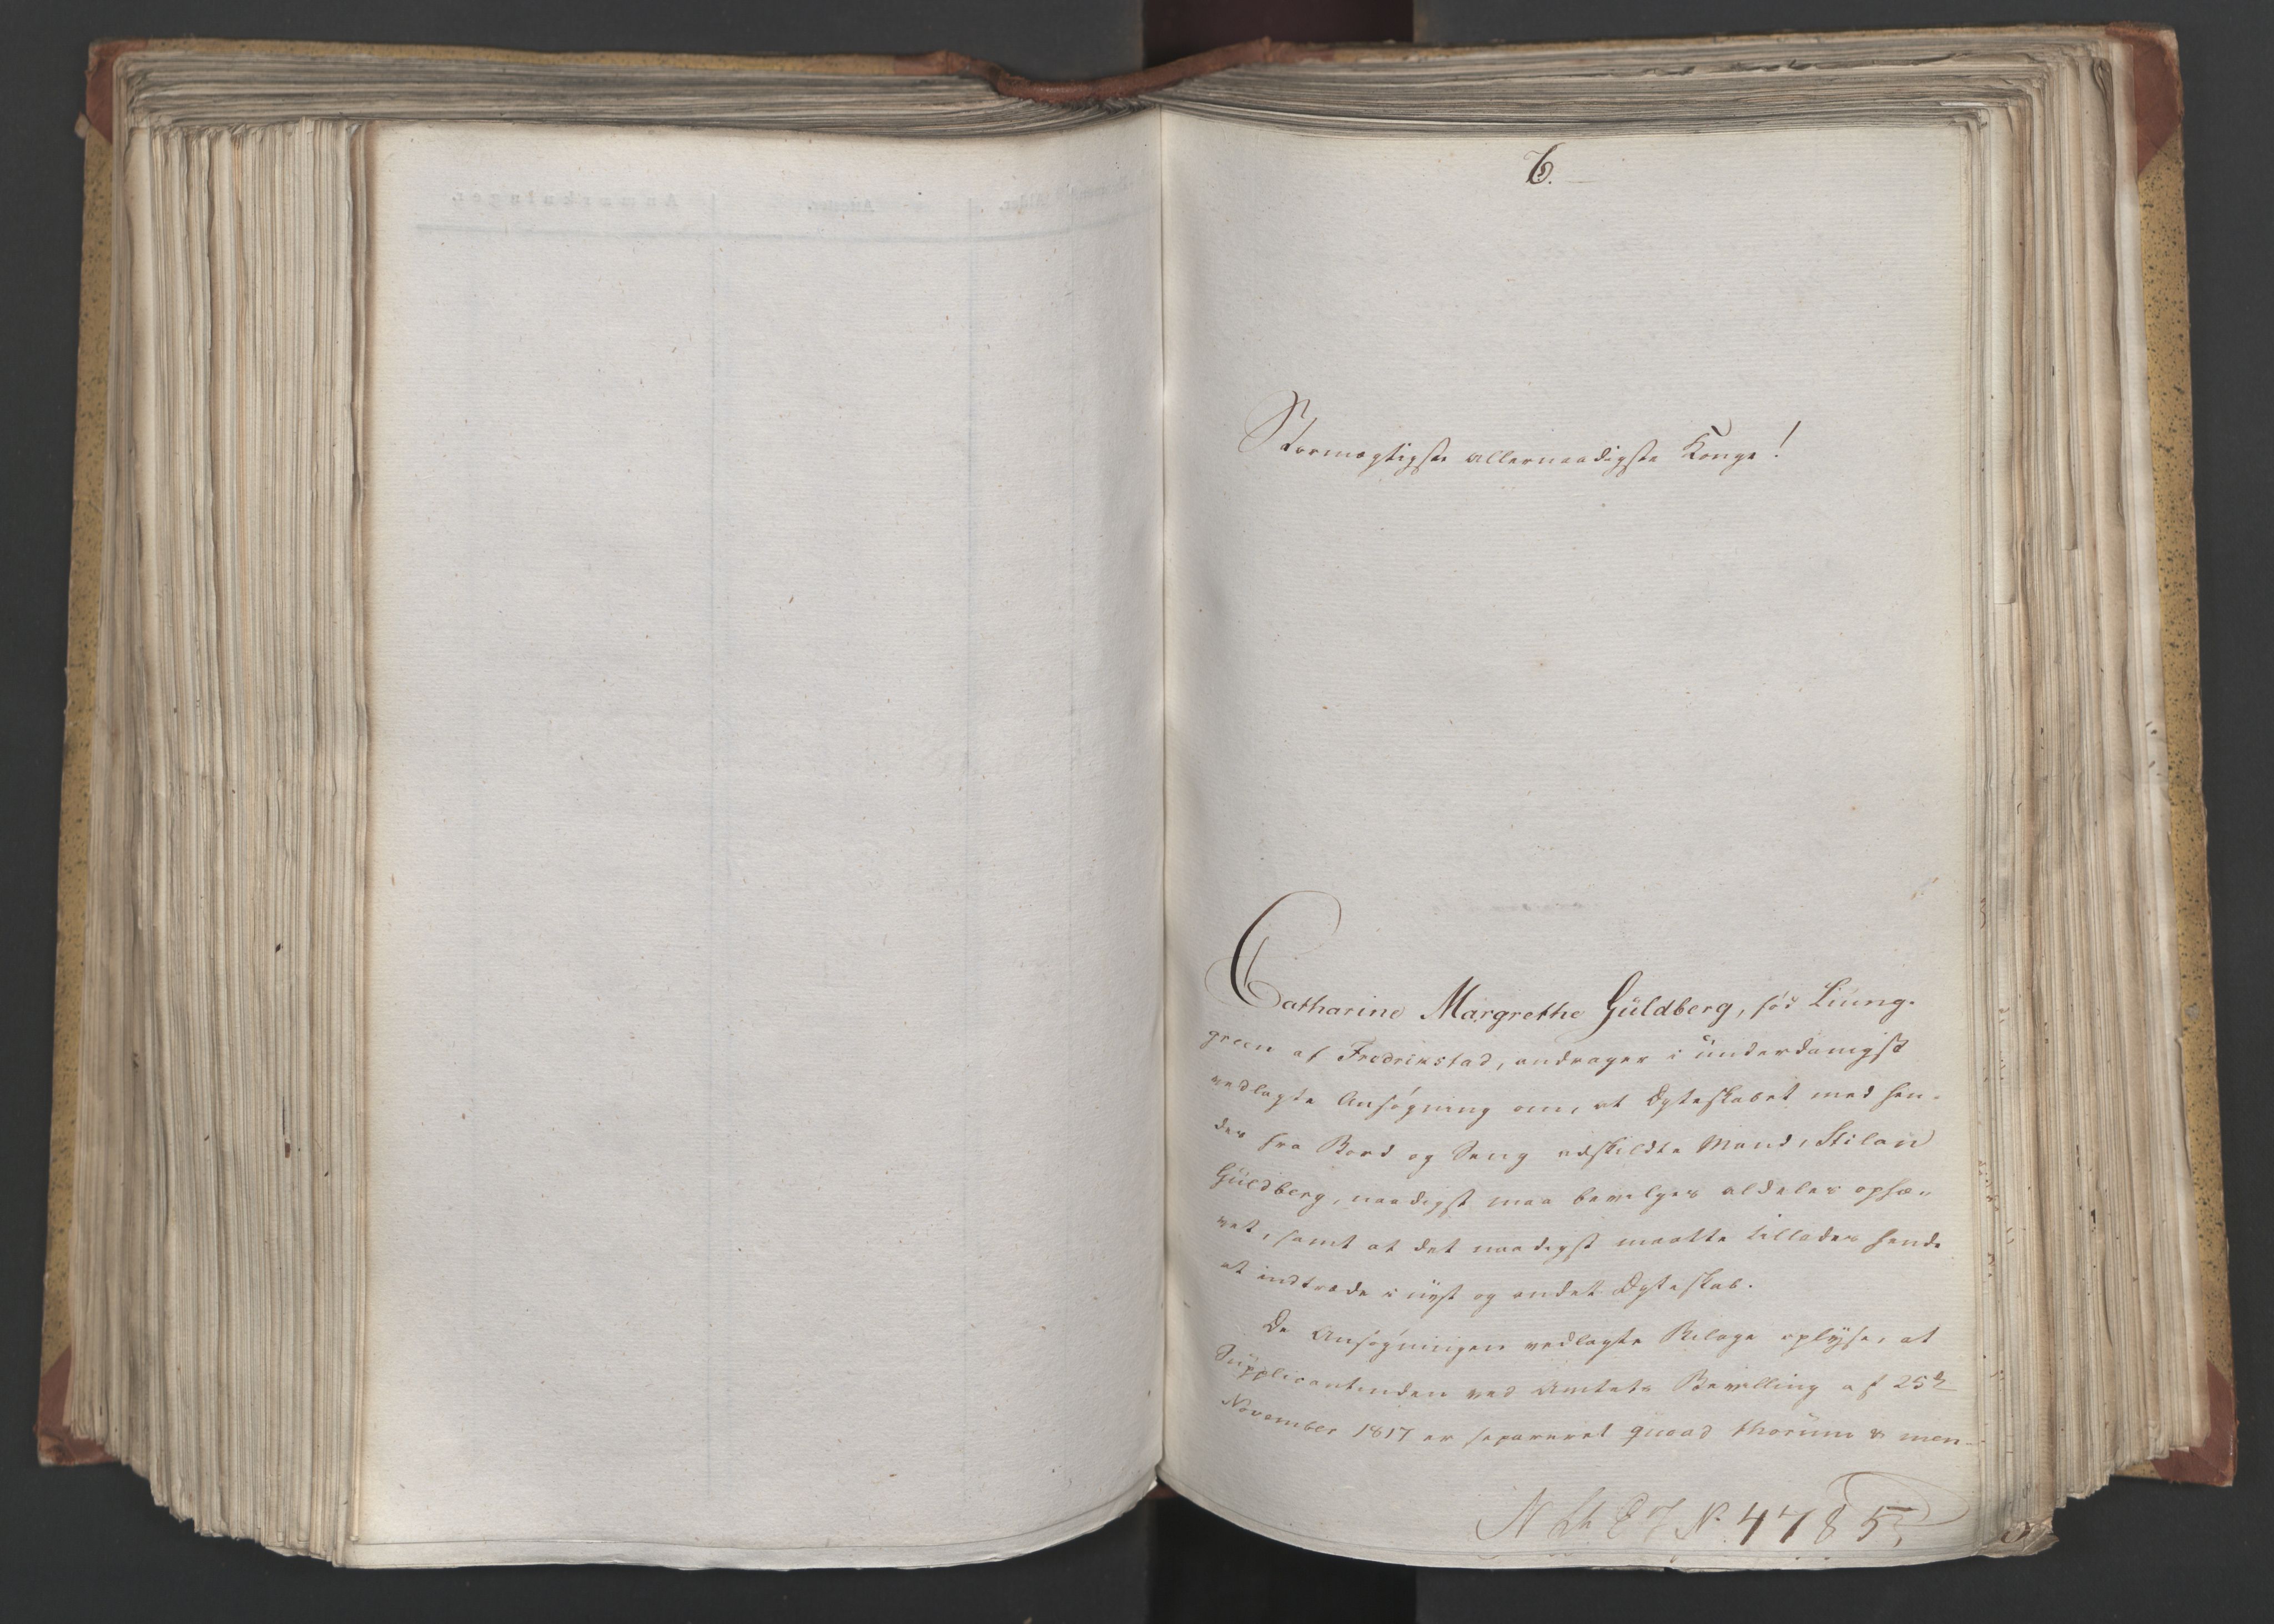 6.
Stormægtigste allernaadigste Konge!
Catharine Margrethe Güldberg, fød Liung-
green af Fredrikstad, andrager i ünderdanigst
vedlagte Ansøgning om, at Ægteskabet med hen-
des fra Bord og Seng adskildte Mand, Stilan
Güldberg, naadigst maa bevilges aldeles ophæ-
vet, samt at det naadigst maatte tillades hende
at indtræde i nyt og andet Ægteskab.
De Ansøgningen vedlagte Bilage oplyse, at
Süpplicantinden ved Amtets Bevilling af 25de
November 1817 er separeret quoad thorum & men-
No 4785